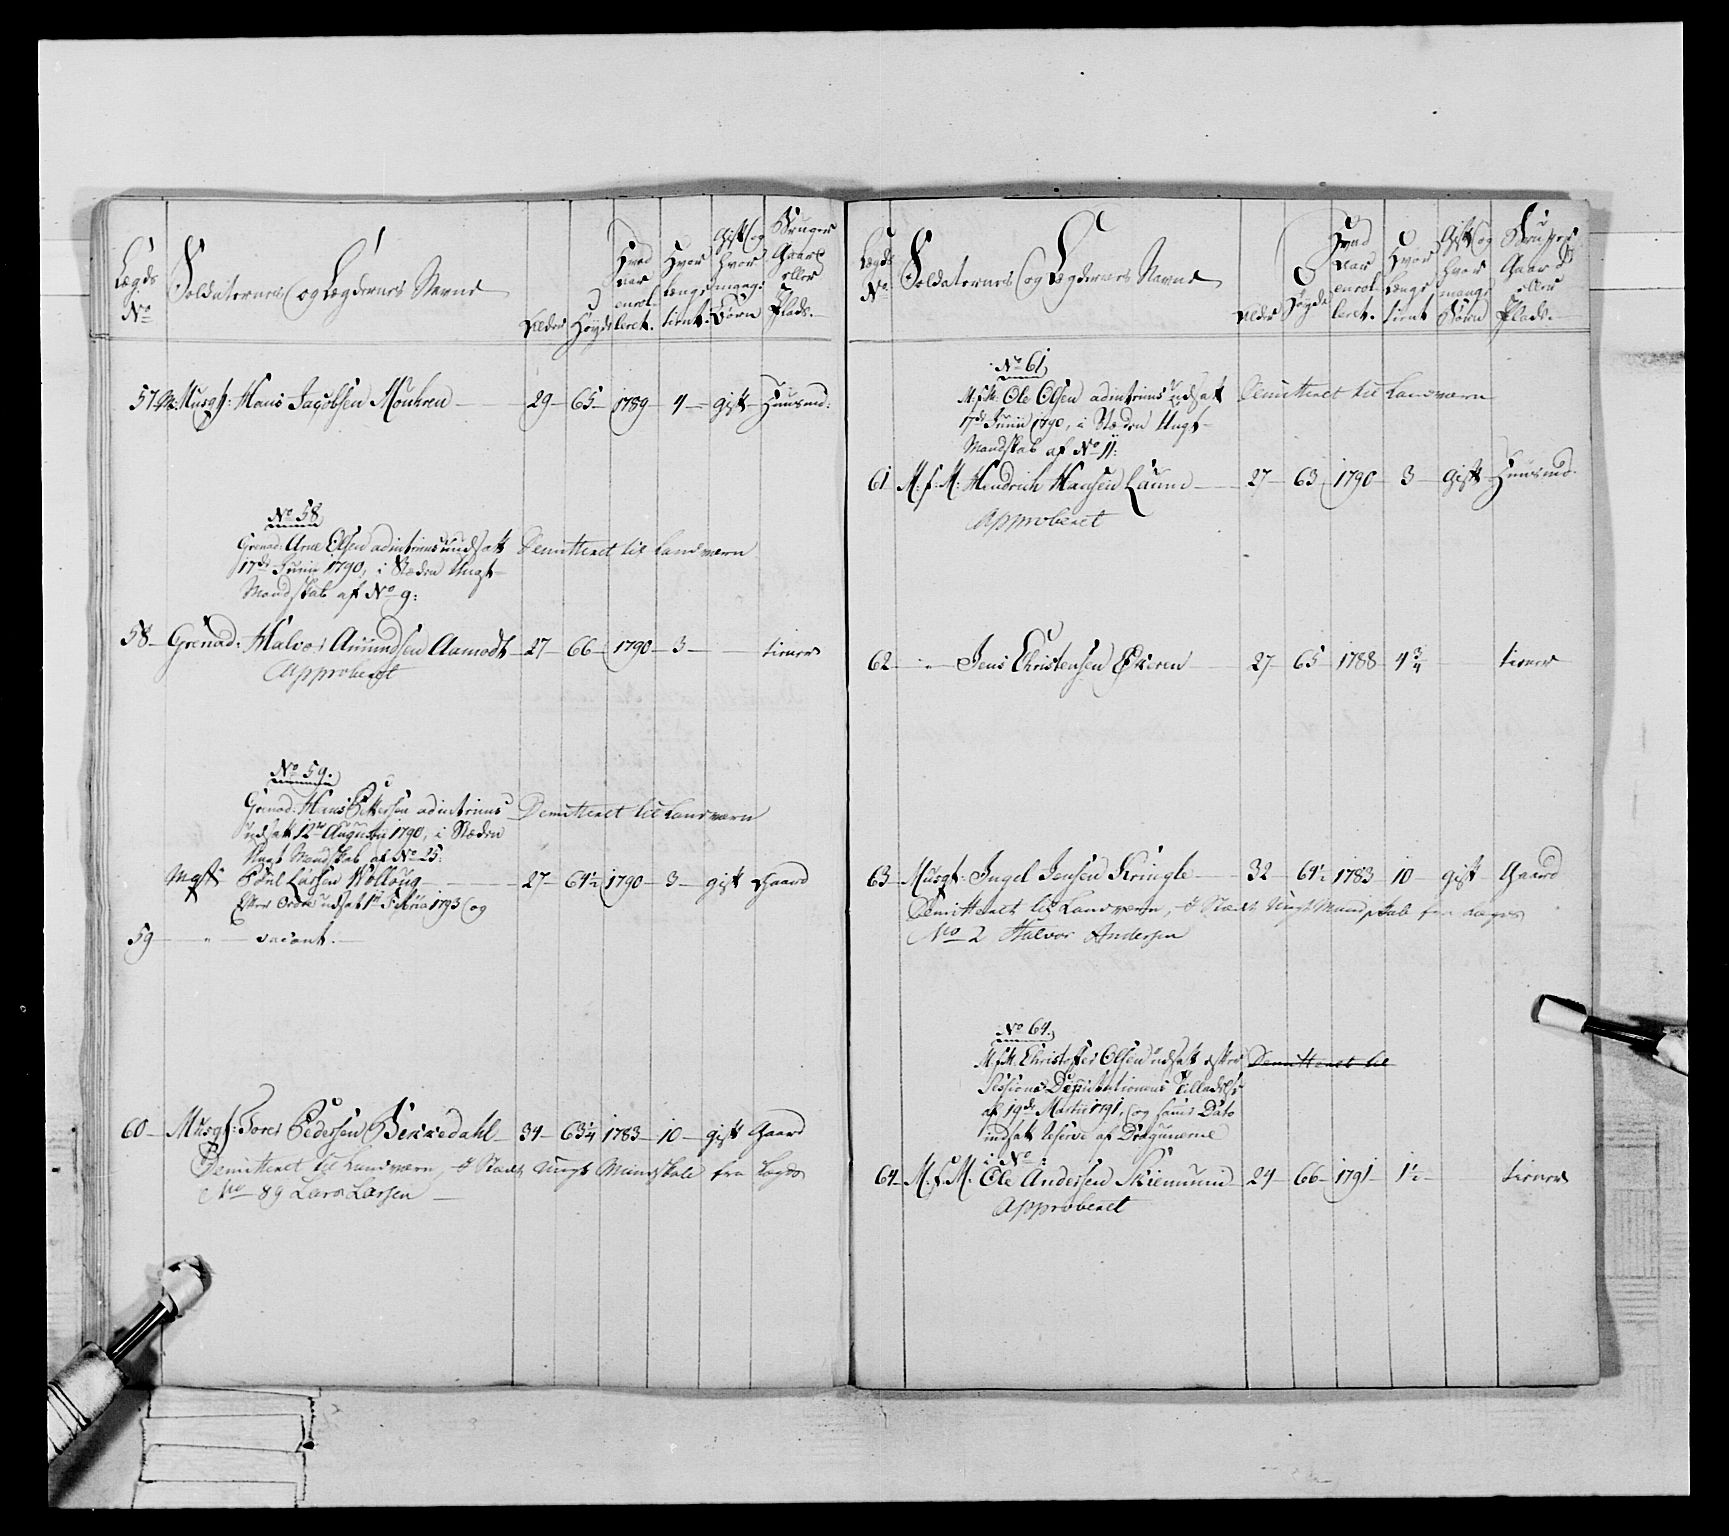 Lægds No
Soldaternes og Lægdernes Navne
Alder
Høyde
Hvad Aar enrolleret.
Hvor længe tient.
Gift og hvor mange Børn
Bruger Gaard eller Plads.
57 Musqt: Hans Jacobsen Mouhren 29 65 1789 4 gift Huusmd:
No 58
Grenad: Arne Olsen ad intrims udsatt Demitteret til Landværn
17de Junii 1790, i Stæden Ungt
Mandskab af No 9:
58 Grenad: Halvor Amundsen Aamodt 27 66 1790 3 tiener
Approberet
No 59.
Grenad: Hans Pettersen ad intrims Demitteret til Landværn
udsatt 12te Augusti 1790, i Stæden
Ungt Mandskab af No 25:
Mqt: Poul Larsen Wolloug 27 64½ 1790 3 gift Gaard
Efter Ordre udsat 1te Febru: 1793 og
59 " vacant.
60 Musqt: Tores Pedersen Bekkedahl 34 63¼ 1783 10 gift Gaard
Demitteret til Landværn, i Stædt Ungt Mandskab fra Lægds
No 89 Lars Larsen
Lægds No
Soldaternes og Lægdernes Navne
Alder
Høyde
Hvad Aar enrolleret.
Hvor længe tient
Gift og hvor mange Børn
Bruger Gaard eller Plads.
No 61
M.f.M: Ole Olsen ad intrims udsatt Demitteret til Landværn
17de Junii 1790, i Stæden Ungt
Mandskab af No 11:
61 M:f:M: Hendrich Hansen Laum 27 63 1790 3 gift Huusmd.
Approberet
62 " Jens Christensen Ekeren 27 65 1788 4¾ tiener
63 Musqt: Ingel Jensen Kringle 32 64½ 1783 10 gift Gaard
Demitteret til Landværn, i Stædt Ungt Mandskab fra Lægds
No 2 Halvor Andersen
No 64.
M.f.M. Christoffer Olsen udsatt efter Demitteret til
Sessions Deputationens Tilladelse
af 19de Martii 1791, og samme Dato
indsat Reserve af Dragunerne
i No:
64 M.f.M. Ole Andersen Skiemund 24 66 1791 1½ tiener
Approberet